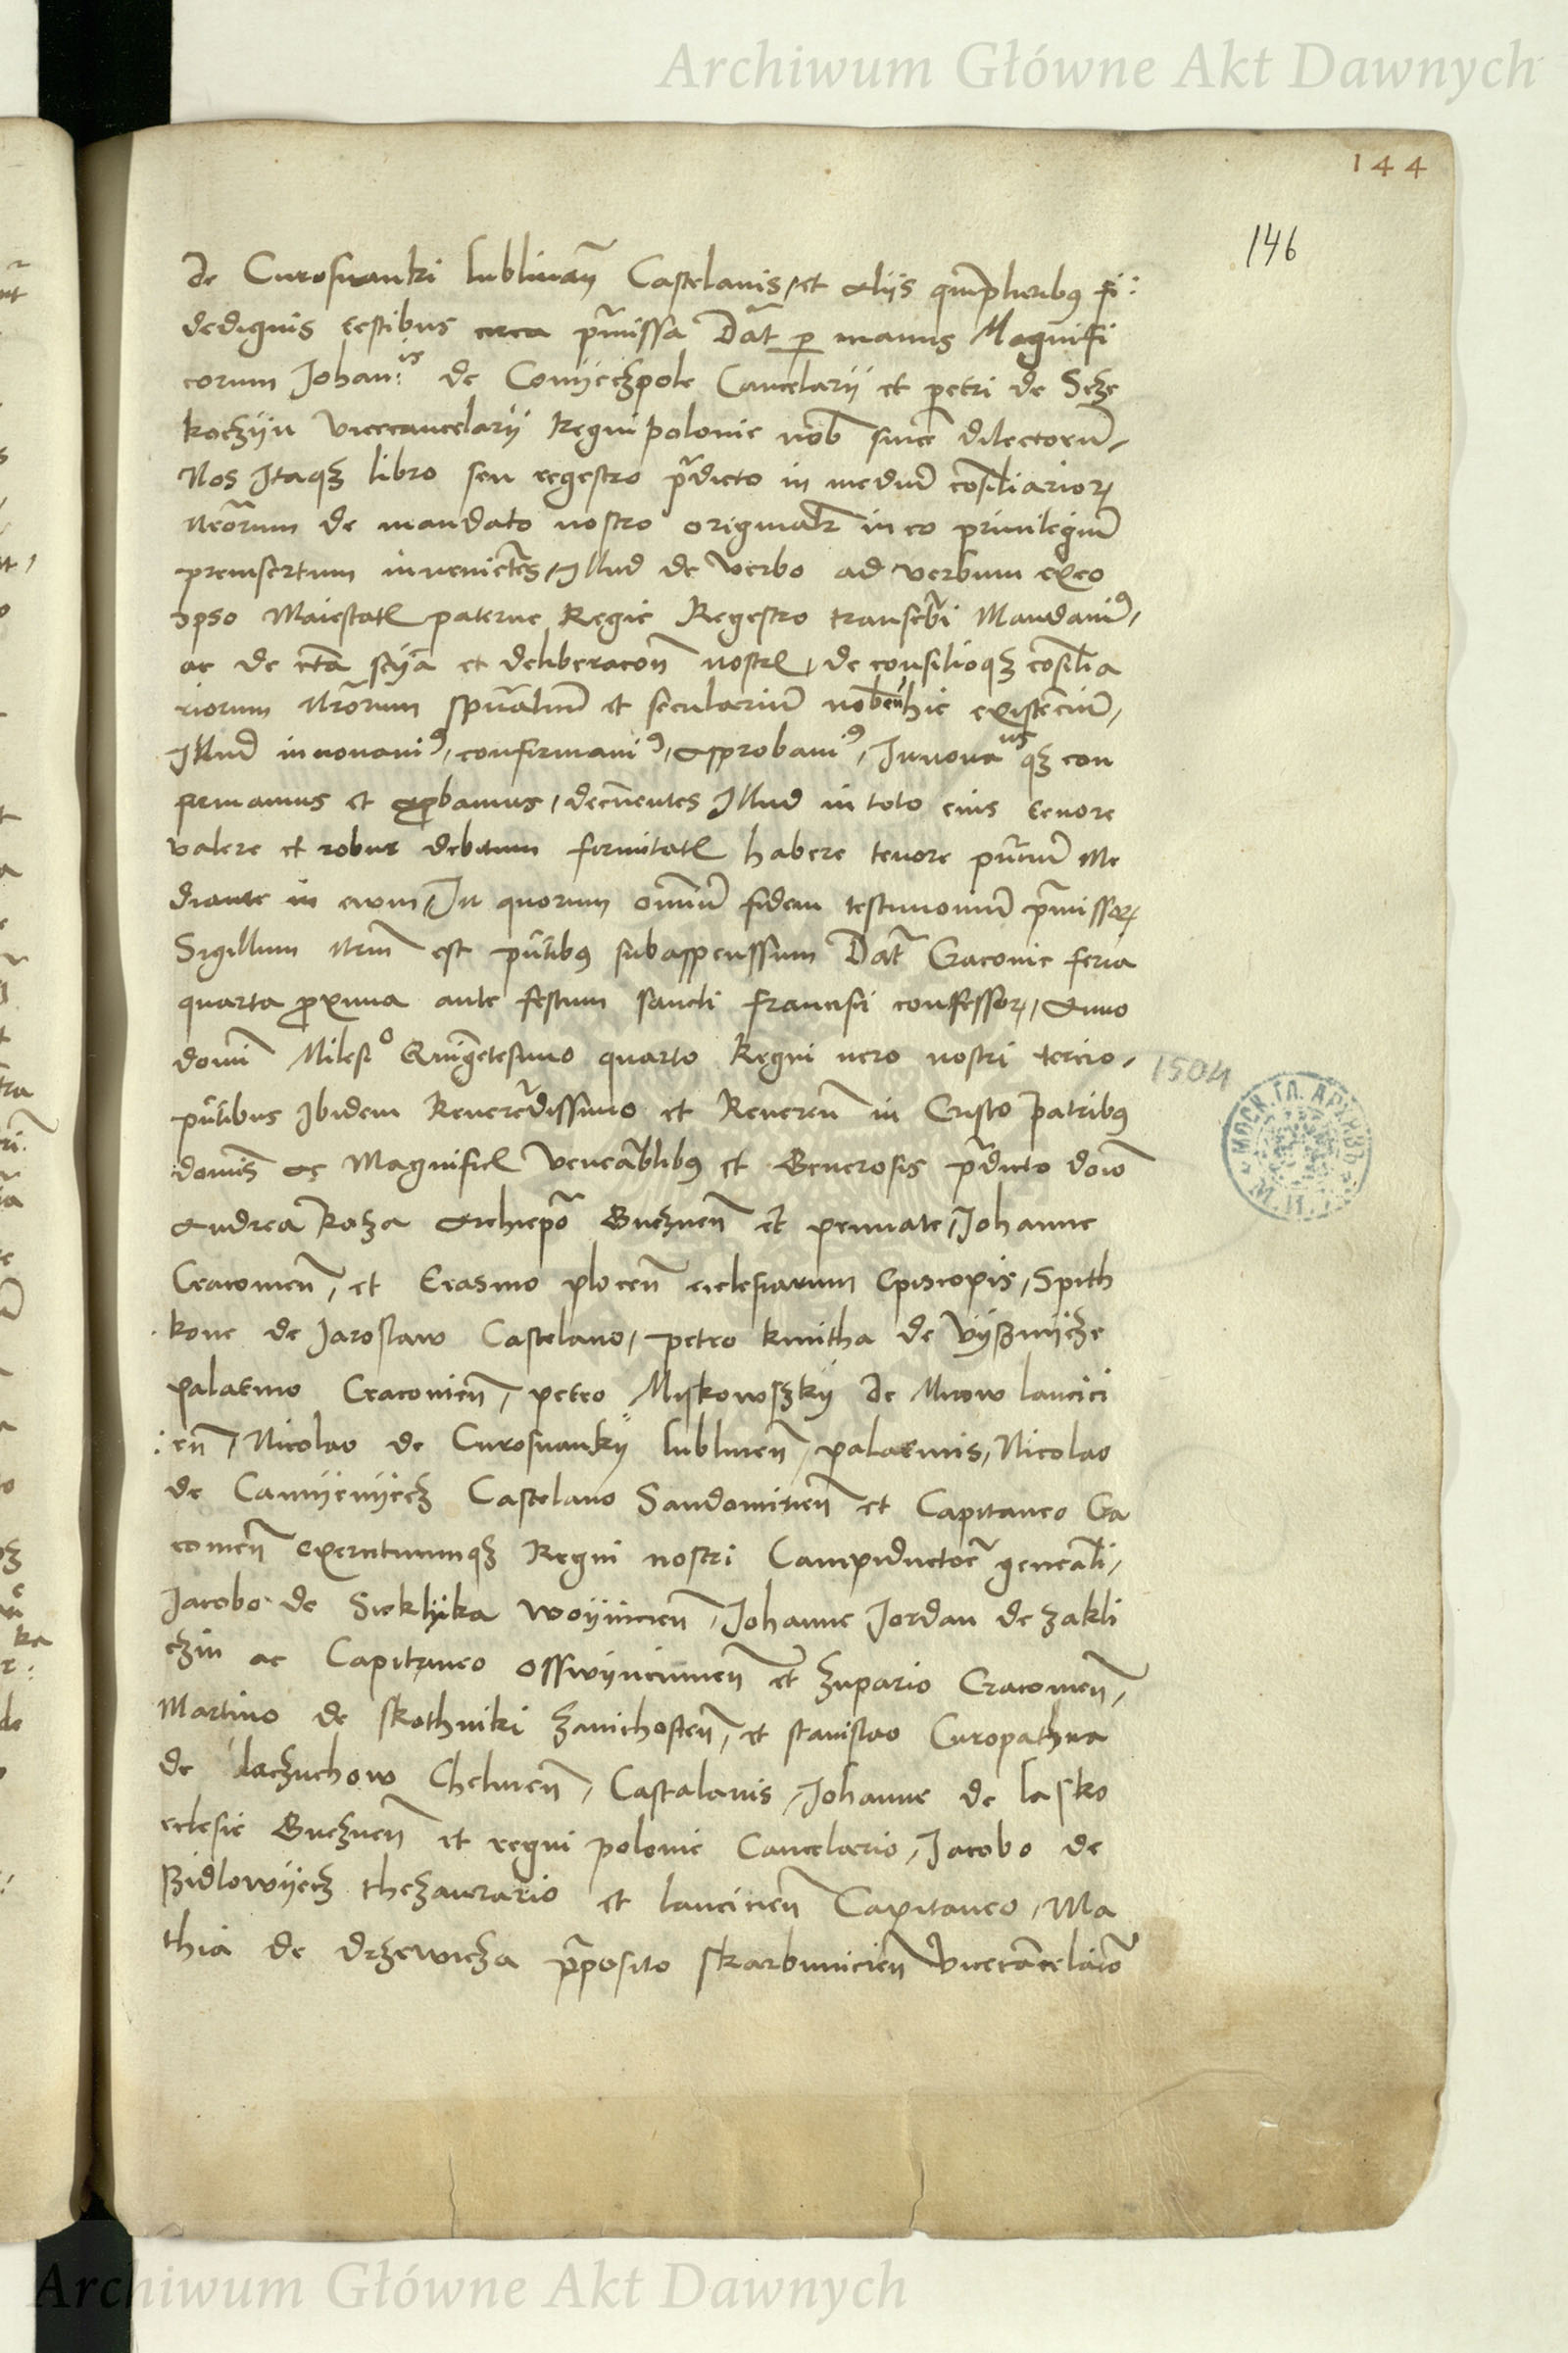 Archiwum Główne Akt Dawnych
144
146
de Curoswanki lublinañ Castelanis, et aliis quãplꝛibꝯ fi:
dedignis testibus circa p̃missa Dat̃ ꝑ manus Magnifi
corum Johan:is de Conyeczpole Cancelarÿ et petri de Scze
koczÿn vicecancelarÿ Regni polonie nob̃ sinc̃e dilectoꝛũ,
Nos Itaqꝫ libro seu regestro p̃dicto in mediũ cõsiliarioꝝ
nr̃orum de mandato nostro originalr̃ in eo privilegiũ
preinsertum invenietẽs, Illud de verbo ad verbum ex eo
ipso Maiestatꝭ paterne Regie Regestro transcr̃bi Mandaviꝯ,
ac de cẽta scÿã et deliberacoñ nostrꝭ, de consilioqꝫ cõsilia
riorum nr̃orum spũaliũ et seculariũ nobcũ hic existẽciũ,
Illud innovaviꝯ, confirmaviꝯ, approbaviꝯ, Innovamusqꝫ con
firmamus et aꝓbamus, decñentes Illud in toto eius tenore
valere et robur debitum firmitatꝭ habere tenore pñciũ me
diante in evum, In quorum om̃iũ fidem testimoniũ p̃missoꝝ
Sigillum nrm̃ est pñtibꝯ subappenssum Dat̃ Cracovie feria
quarta ꝓxima ante festum sancti francisci confessoꝝ, Anno
domĩ Milesiº Quingẽtesimo quarto Regni vero nostri tercio,
1504
pñtibus Ibidem Reverẽdissimo et Revereñ in Cristo patribꝯ
domĩs ac Magnificꝭ Veneãblibꝯ et Generosis p̃dicto dõio
Andrea Roza Archiep̃o Gneznen̄ et primate, Johanne
Cracovien̄, et Erasmo plocen̄ eclesiarum Episcopis, Spith
kone de Jaroslaw Castelano, petro kmitha de Vÿssnÿcze
palatino Cracovien̄, petro Mÿskowszkÿ de Mirow lancici
:en̄, Nicolao de Curoswankÿ lublinen̄, palatinis, Nicolao
de Camÿenÿecz Castelano Sandomirien̄ et Capitaneo Cra
covien̄ exercituumqꝫ Regni nostri Campiductoꝛẽ geneãli,
Jacobo de Sieklÿka woÿnicien̄, Johanne Jordan de zakli
czin ac Capitaneo osswÿncimen̄ et zupario Cracovien̄,
Martino de skothniki zavichosten̄, et stanislao Curopathva
de laczuchow Chelmen̄, Castalanis, Johanne de lasko
eclesie Gneznen̄ et regni polonie Cancelario, Jacobo de
Schidlowÿecz thezaurario et lancicien̄ Capitaneo, Ma
thia de drzewicza p̃posito skarbimirien̄ vicecãcelario
Archiwum Główne Akt Dawnych